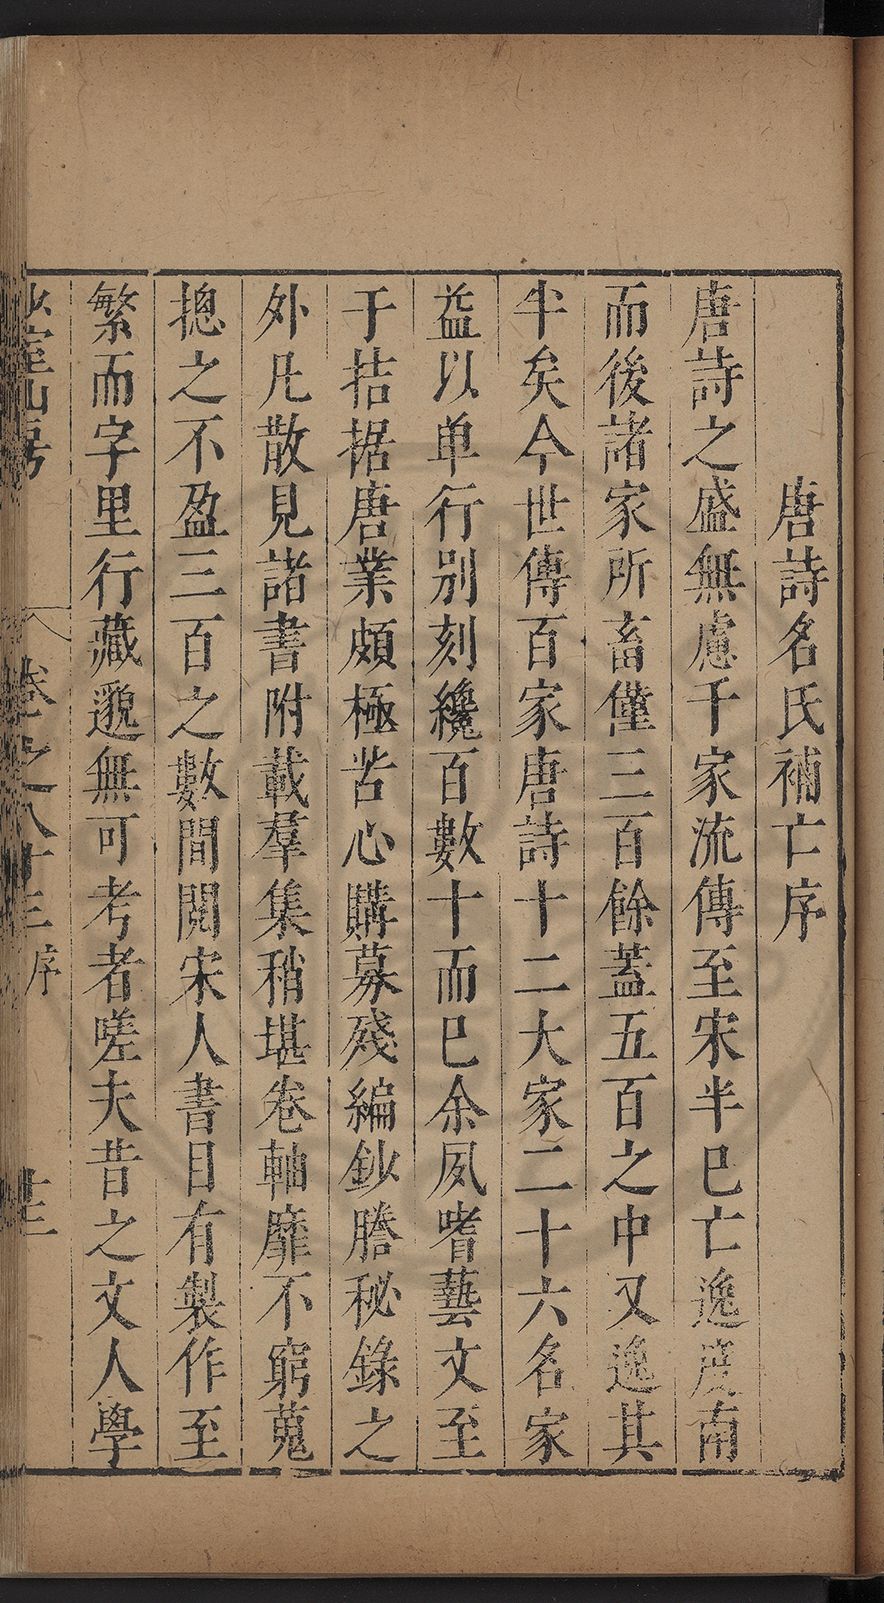 唐詩名氏補亡序
唐詩之盛無慮千家流傳至宋半巳亡逸度南
而後諸家所畜僅三百餘蓋五百之中又逸其
半矣今世傳百家唐詩十二大家二十六名家
益以单行别刻纔百數十而巳余夙嗜藝文至
于拮据唐業頗極苦心購募殘編鈔謄秘錄之
外凡散見諸書附載羣集稍堪卷軸靡不窮蒐
摠之不盈三百之數間閱宋人書目有製作至
繁而字里行藏邈無可考者嗟夫昔之文人學
卷之八十三 序